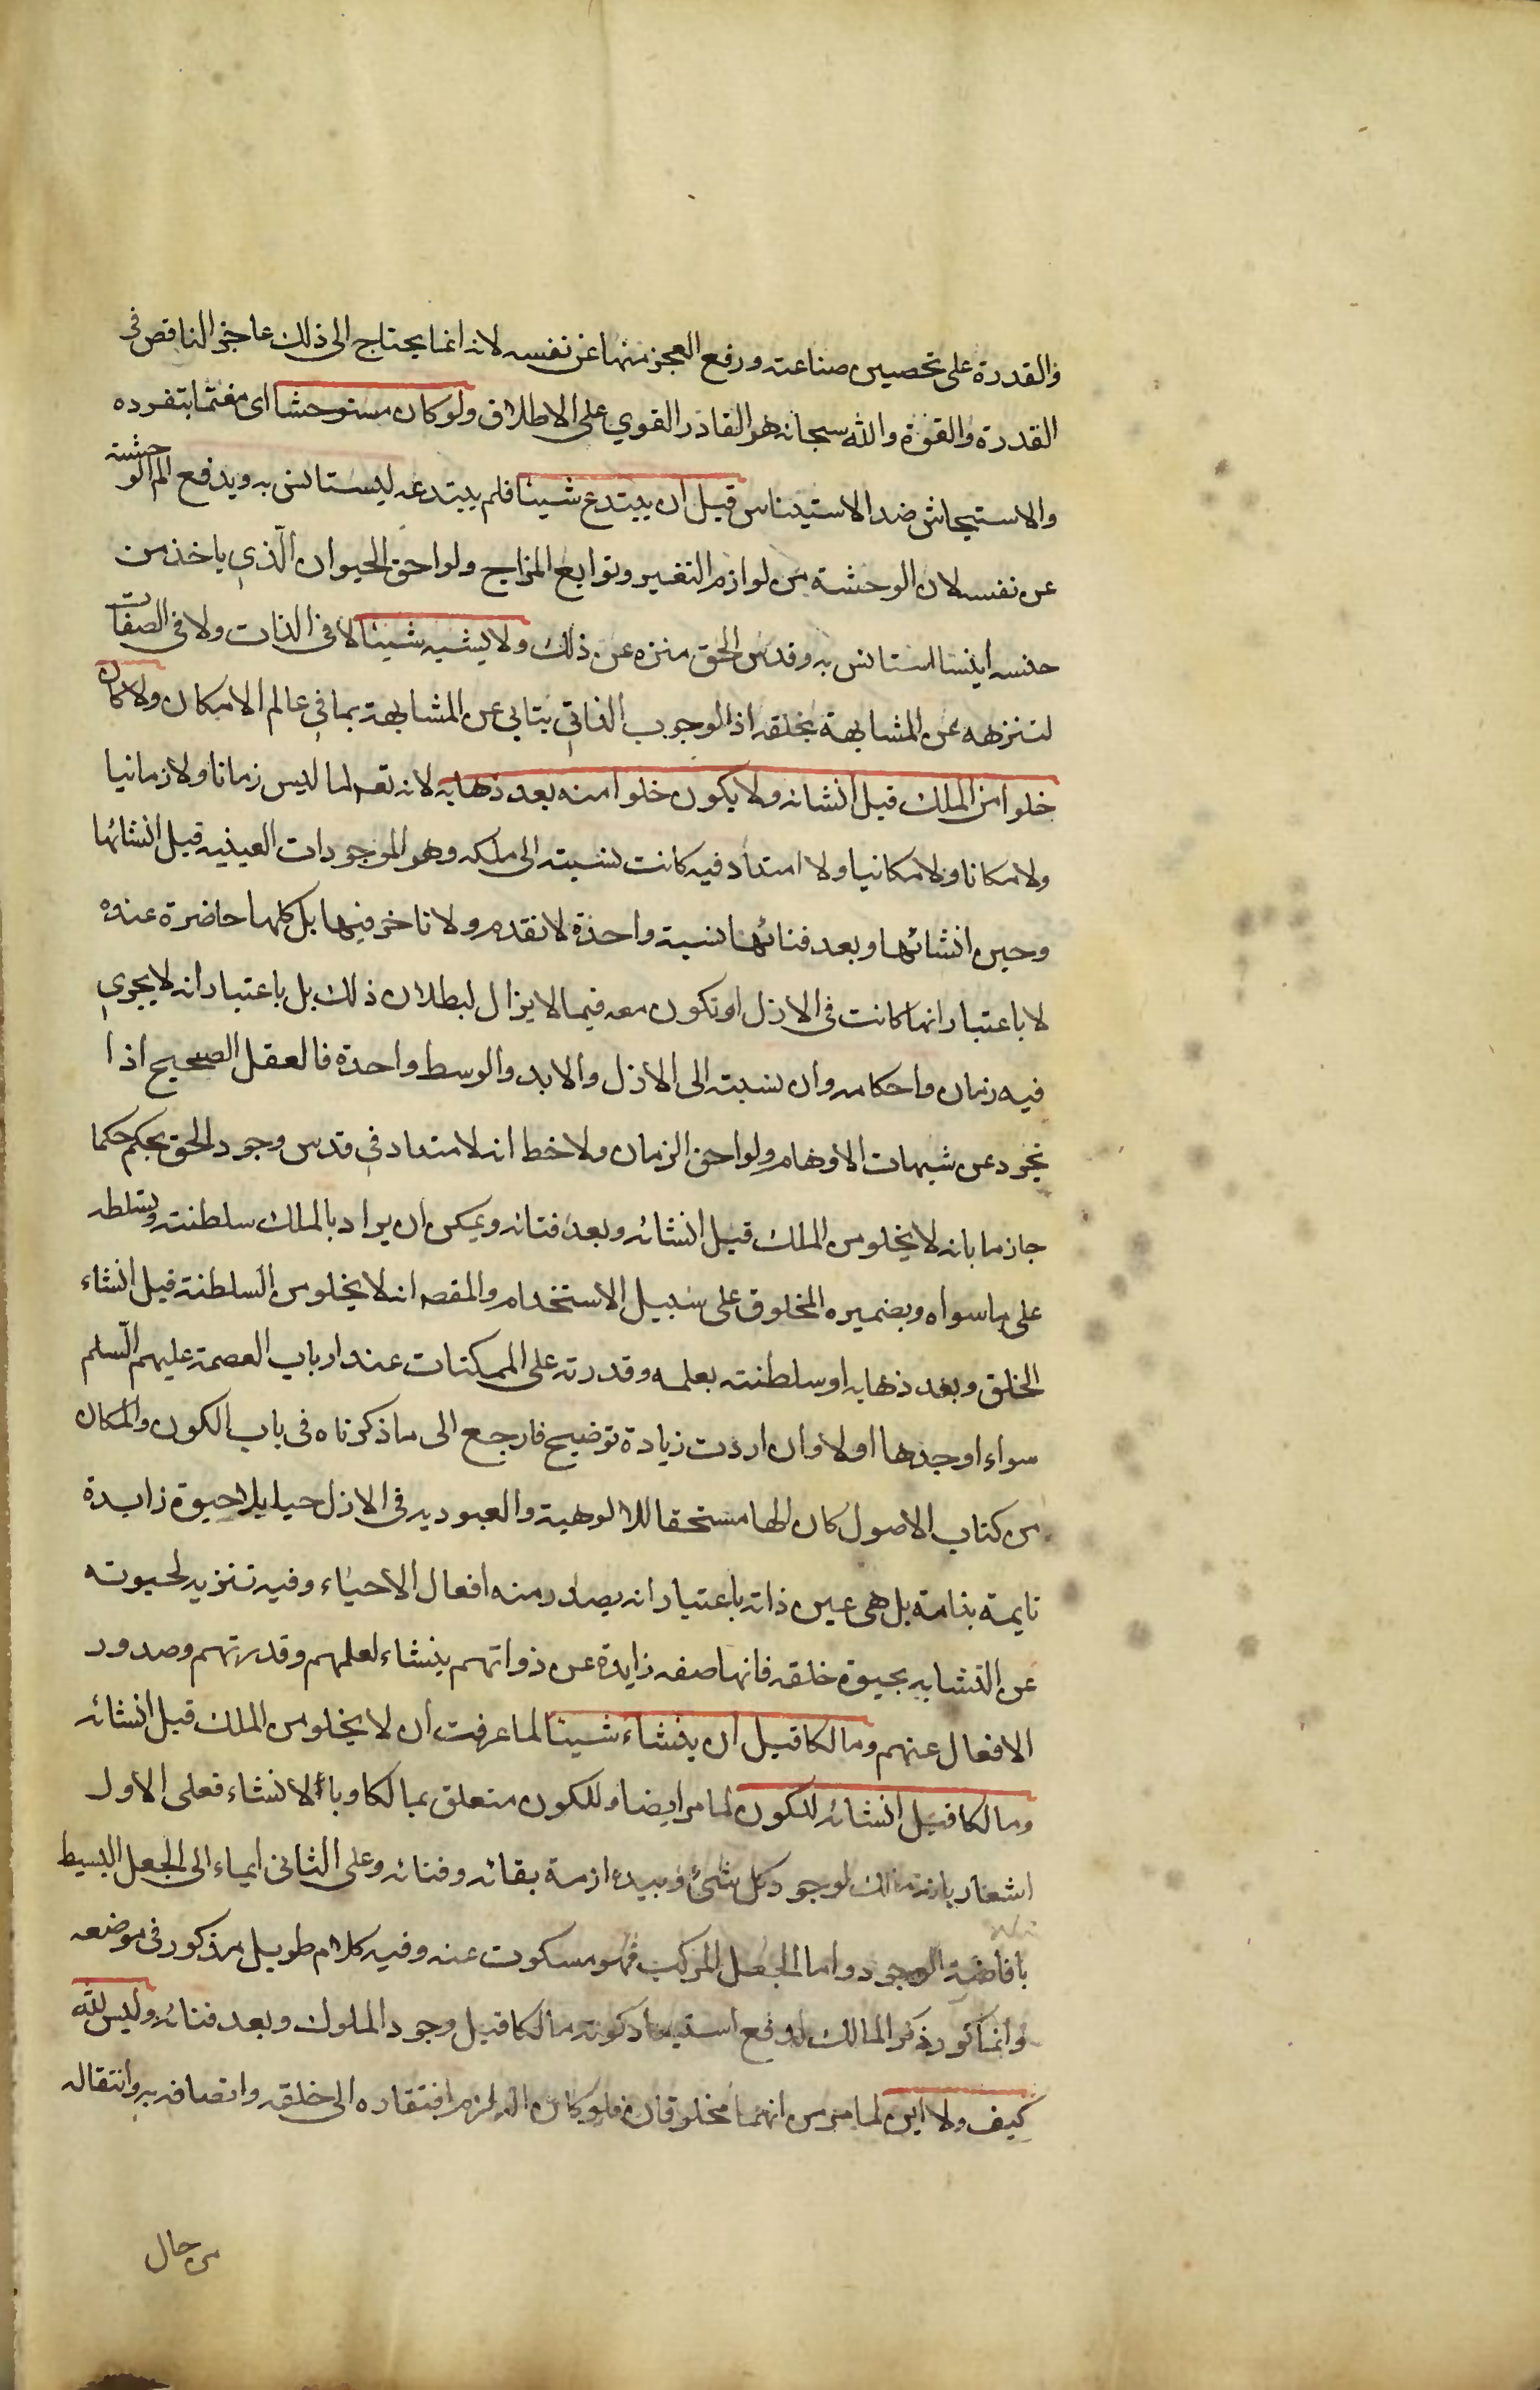 والقدرة على تحصين صناعته ورفع العجز منها عن نفسه لانه انما يحتاج الى ذلك عاجز الناقص فى
القدرة والقوة والله سبحانه هو القادر القوي على الاطلاق ولو كان مستوحشا اى مغتما بتفرده
والاستيحاش ضد الاستيناس قبل ان يبتدع شيئا فلم يبتدعه ليستانس به ويدفع الم الوحشة
عن نفسه لان الوحشة من لوازم التغير وتوابع المزاج ولواحق الحيوان الّذي ياخذ من
جنسه انيسا ليستانس به وقدس الحق منزه عن ذلك ولا يشبه شيئا لا فى الذات ولا فى الصفات
لتنزهه عن المشابهة بخلقه اذ الوجوب الذاتي يتابى عن المشابهة بما في عالم الامكان ولا كان
خلوا من الملك قبل انشائه ولا يكون خلوا منه بعد ذهابه لانه تعم لما ليس زمانا ولا زمانيا
ولا مكانا ولا مكانيا ولا امتداد فيه كانت نسبته الى ملكه وهو الموجودات العينيه قبل انشائها
وحين انشائها وبعد فنائها نسبة واحدة لا تقدم ولا تاخر فيها بل كلها حاضرة عنده
لا باعتبار انها كانت فى الازل او تكون معه فيما لا يزال لبطلان ذلك بل باعتبار انه لا يجري
فيه زمان واحكامه وان نسبته الى الازل والابد والوسط واحدة فالعقل الصحيح اذا
تجرد عن شبهات الاوهام ولواحق الزمان ولاخط انه لا امتداد في قدس وجود الحق يحكم حكما
جازما بانه لا يخلو من الملك قبل انشائه وبعد فنائه ويمكن ان يراد بالملك سلطنته وتسلطه
على ما سواه وبضميره المخلوق على سبيل الاستخدام والمقصه انه لا يخلو من السلطنة قبل انشاء
الخلق وبعد ذهابه او سلطنته بعلمه وقدرته على الممكنات عند ارباب العصمة عليهم السّلم
سواء اوجدها اولا وان اردت زيادة توضيح فارجع الى ما ذكرناه فى باب الكون والمكان
من كتاب الاصول كان الها مستحقا للالوهية والعبوديه فى الازل حيا بلا حيوة زايدة
قايمة بذاته بل هى عين ذاته باعتبار انه يصدر منه افعال الاحياء وفيه تنزيه لحيوته
عن التشابه بحيوة خلقه فانها صفه زايدة عن ذواتهم ينشاء لعلمهم وقدرتهم وصدور
الافعال عنهم ومالكا قبل ان ينشاء شيئا لما عرفت ان لا يخلو من الملك قبل انشائه
ومالكا قبل انشائه للكون لما مر ايضا وللكون متعلق بمالكا او بالانشاء فعلى الاول
اشعار بانه مالك لوجود كل شئ وبيده ازمة بقائه وفنائه وعلى الثانى ايماء الى الجعل البسيط
بافاضة الوجود واما الجعل المركب فهو مسكوت عنه وفيه كلام طويل مذكور فى موضعه
وانما كرر ذكر المالك لدفع استبعاد كونه مالكا قبل وجود الملوك وبعد فنائه وليس لله
كيف ولا اين لما مر من انهما مخلوقان فلو كان له لزم افتقاره الى خلقه واتصافه به وانتقاله
من حال